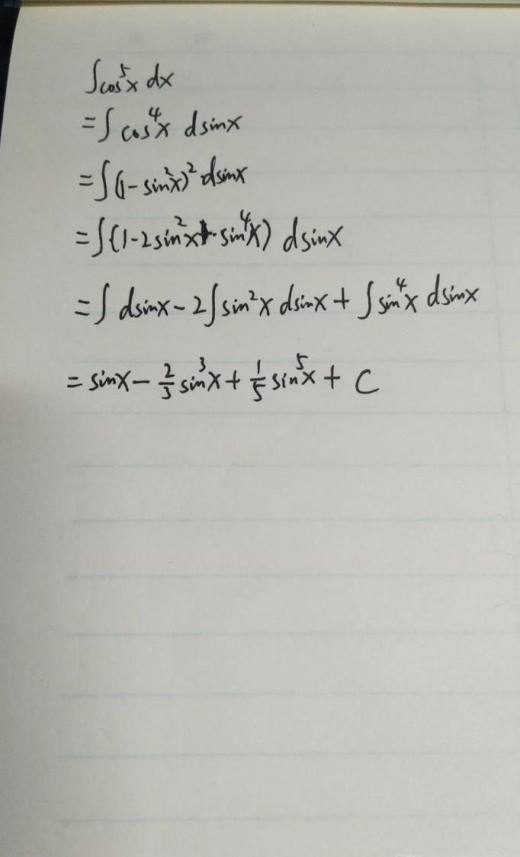 ∫cos⁵x dx
=∫cos⁴x dsinx
=∫(1-sin²x)² dsinx
=∫(1-2sin²x+sin⁴x) dsinx
=∫dsinx-2∫sin²x dsinx+∫sin⁴x dsinx
=sinx-2/3 sin³x+1/5 sin⁵x+C